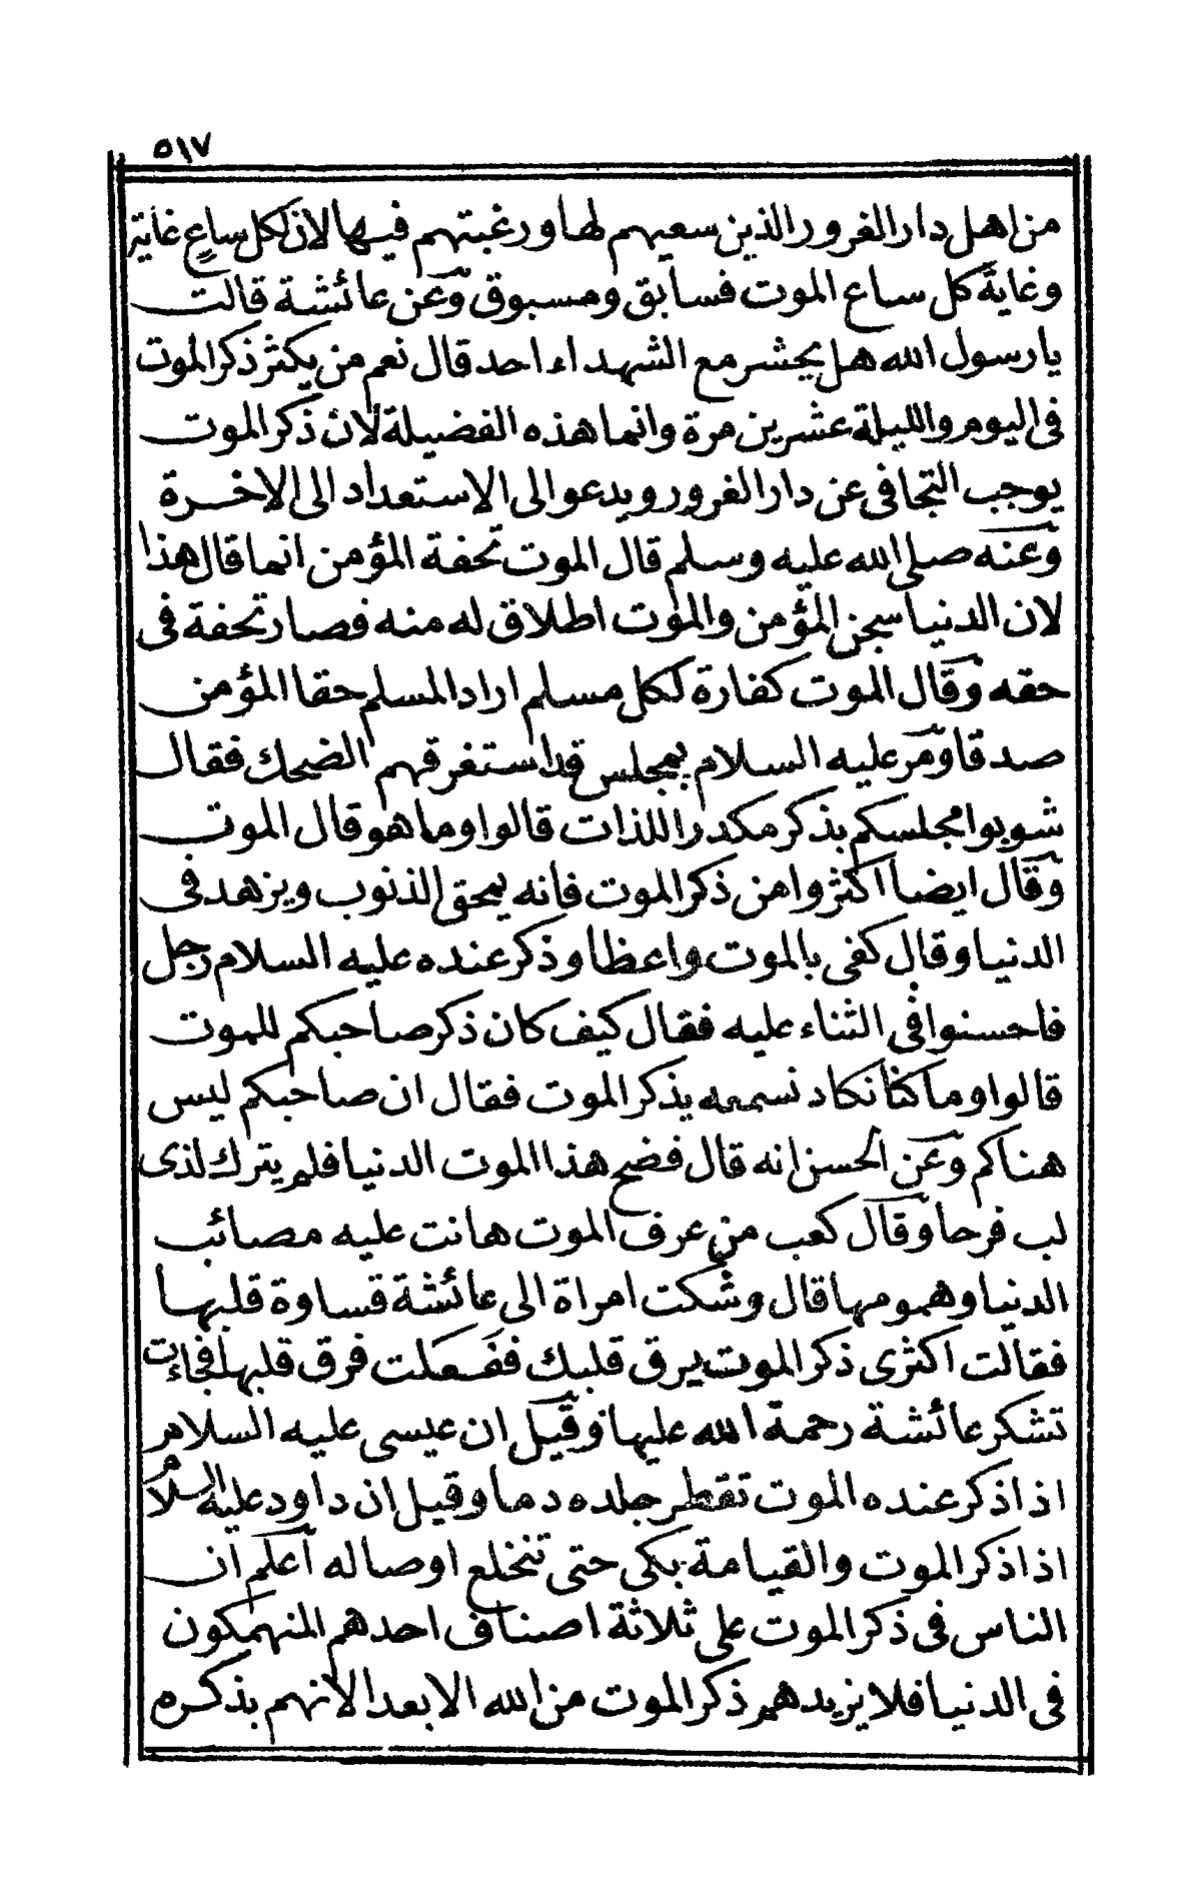 ٥١٧
من اهل دار الغرور الذين سعيهم لها ورغبتهم فيها لان لكل ساع غاية
وغاية كل ساع الموت فسابق ومسبوق وعن عائشة قالت
يا رسول الله هل يحشر مع الشهداء احد قال نعم من يكثر ذكر الموت
فى اليوم والليلة عشرين مرة وانما هذه الفضيلة لان ذكر الموت
يوجب التجافى عن دار الغرور ويدعو الى الاستعداد الى الاخرة
وعنه صلى الله عليه وسلم قال الموت تحفة المؤمن انما قال هذا
لان الدنيا سجن المؤمن والموت اطلاق له منه فصار تحفة فى
حقه وقال الموت كفارة لكل مسلم اراد المسلم حقا المؤمن
صدقا ومر عليه السلام بمجلس قد استغرقهم الضحك فقال
شوبوا مجلسكم بذكر مكدر اللذات قالوا وما هو قال الموت
وقال ايضا اكثروا من ذكر الموت فانه يمحق الذنوب ويزهد فى
الدنيا وقال كفى بالموت واعظا وذكر عنده عليه السلام رجل
فاحسنوا فى الثناء عليه فقال كيف كان ذكر صاحبكم للموت
قالوا وما كنا نكاد نسمعه يذكر الموت فقال ان صاحبكم ليس
هناكم وعن الحسن انه قال فضح هذا الموت الدنيا فلم يترك لذى
لب فرحا وقال كعب من عرف الموت هانت عليه مصائب
الدنيا وهمومها قال وشكت امراة الى عائشة قساوة قلبها
فقالت اكثرى ذكر الموت يرق قلبك ففعلت فرق قلبها فجاءت
تشكر عائشة رحمة الله عليها وقيل ان عيسى عليه السلام
اذا ذكر عنده الموت تقطر جلده دما وقيل ان داود عليه السلام
اذا ذكر الموت والقيامة بكى حتى تنخلع اوصاله اعلم ان
الناس فى ذكر الموت على ثلاثة اصناف احدهم المنهمكون
فى الدنيا فلا يزيدهم ذكر الموت من الله الا بعدا لانهم بذكره